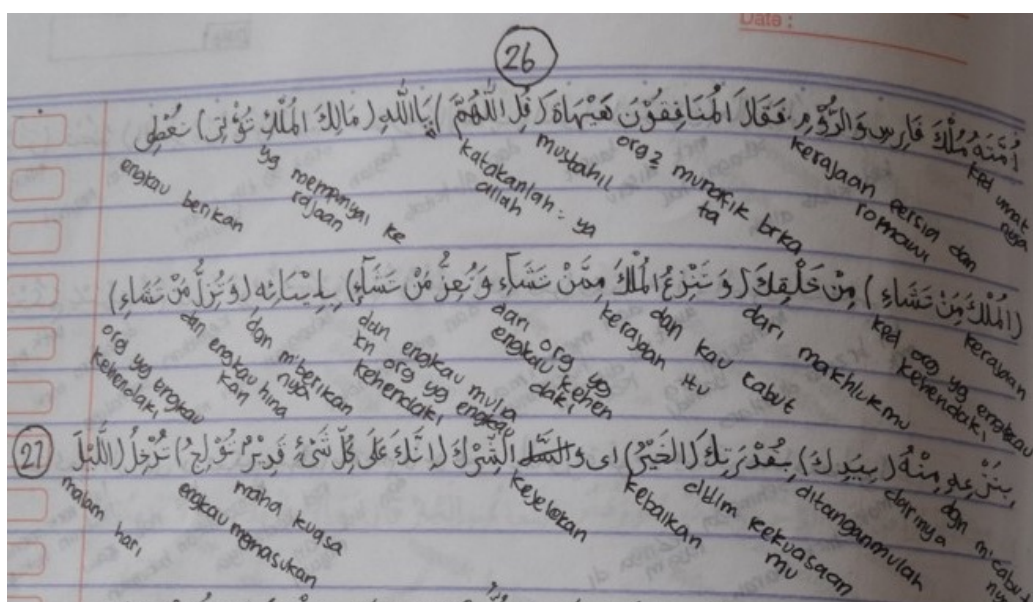 Date :
26
اُمَّتَهُ مُلْكَ فَارِسِ وَالرُّوْمِ فَقَالَ الْمُنَافِقُوْنَ هَيْهَاةَ (قُلِ اللّٰهُمَّ) يَااَللّٰهِ (مَالِكَ الْمُلْكِ تُؤْتِى) تُعْطِى
kpd umat nya
kerajaan persia dan romawi
org2 munafik brka ta
mustahil
katakanlah : ya allah
yg mempunyai ke rajaan
engkau berikan
(الْمُلْكَ مَنْ تَشَاءِ) مِنْ خَلْقِكَ (وَتَنْزِعُ الْمُلْكَ مِمَّنْ تَشَآء وَتُعِزُّ مَنْ تَشَآءِ) بِاِيْتَائِه (وَتُزِلُّ مَنْ تَشَاءِ)
kerajaan
kpd org yg engkau kehendaki
dari makhlukmu
dan kau cabut
kerajaan itu
dari org yg engkau kehen daki
dan engkau mulia kn org yg engkau kehendaki
dgn m'berikan nya
dan engkau hina kan
org yg engkau kehendaki
بِنَزْعِهِ مِنْهُ (بِيَدِكَ) بِقُدْرَتِكَ (الْخَيْرُ) اى وَ الشِّرْكَ (اِنَّكَ عَلَى كُلِّ شَىْءٍ قَدِيْرٌ تُوْلِجُ) تُدْخِلُ (اللَّيْلَ
27
dgn m'cabut nya
darinya
ditanganmulah
dlm kekuasaan mu
kebaikan
kejelekan
maha kuasa
engkau memasukan
malam hari